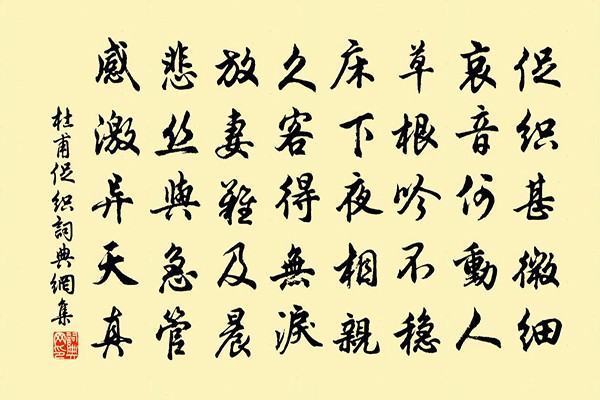 促织甚微细
哀音何動人
草根吟不稳
床下夜相親
久客得無淚
放妻難及晨
悲丝與急管
感激异天真
杜甫促织詞典網集